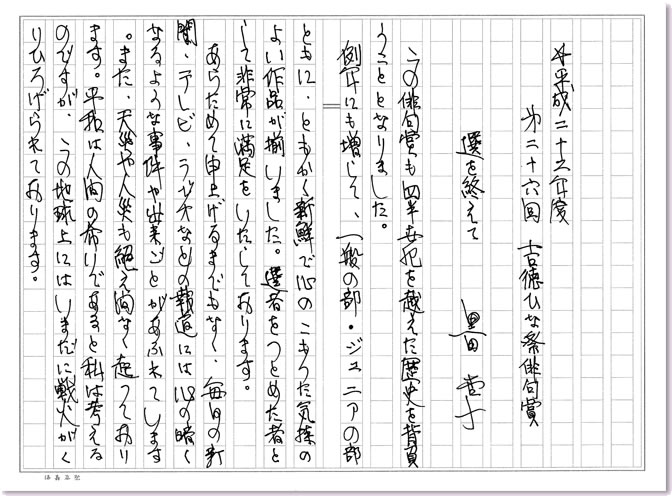 平成二十三年度
第二十六回 吉徳ひな祭俳句賞
選を終えて
黒田杏子
この俳句賞も四半世紀を越えた歴史を背負
うこととなりました。
例年にも増して、一般の部・ジュニアの部
ともに、ともかく新鮮で心のこもった気持の
よい作品が揃いました。選者をつとめた者と
して非常に満足をいたしております。
あらためて申上げるまでもなく、毎日の新
聞、テレビ、ラジオなどの報道には心の暗く
なるような事件や出来ごとがあふれています
。また、天災や人災も絶え間なく起っており
ます。平和は人間の祈りであると私は考える
のですが、この地球上にはいまだに戦火がく
りひろげられております。